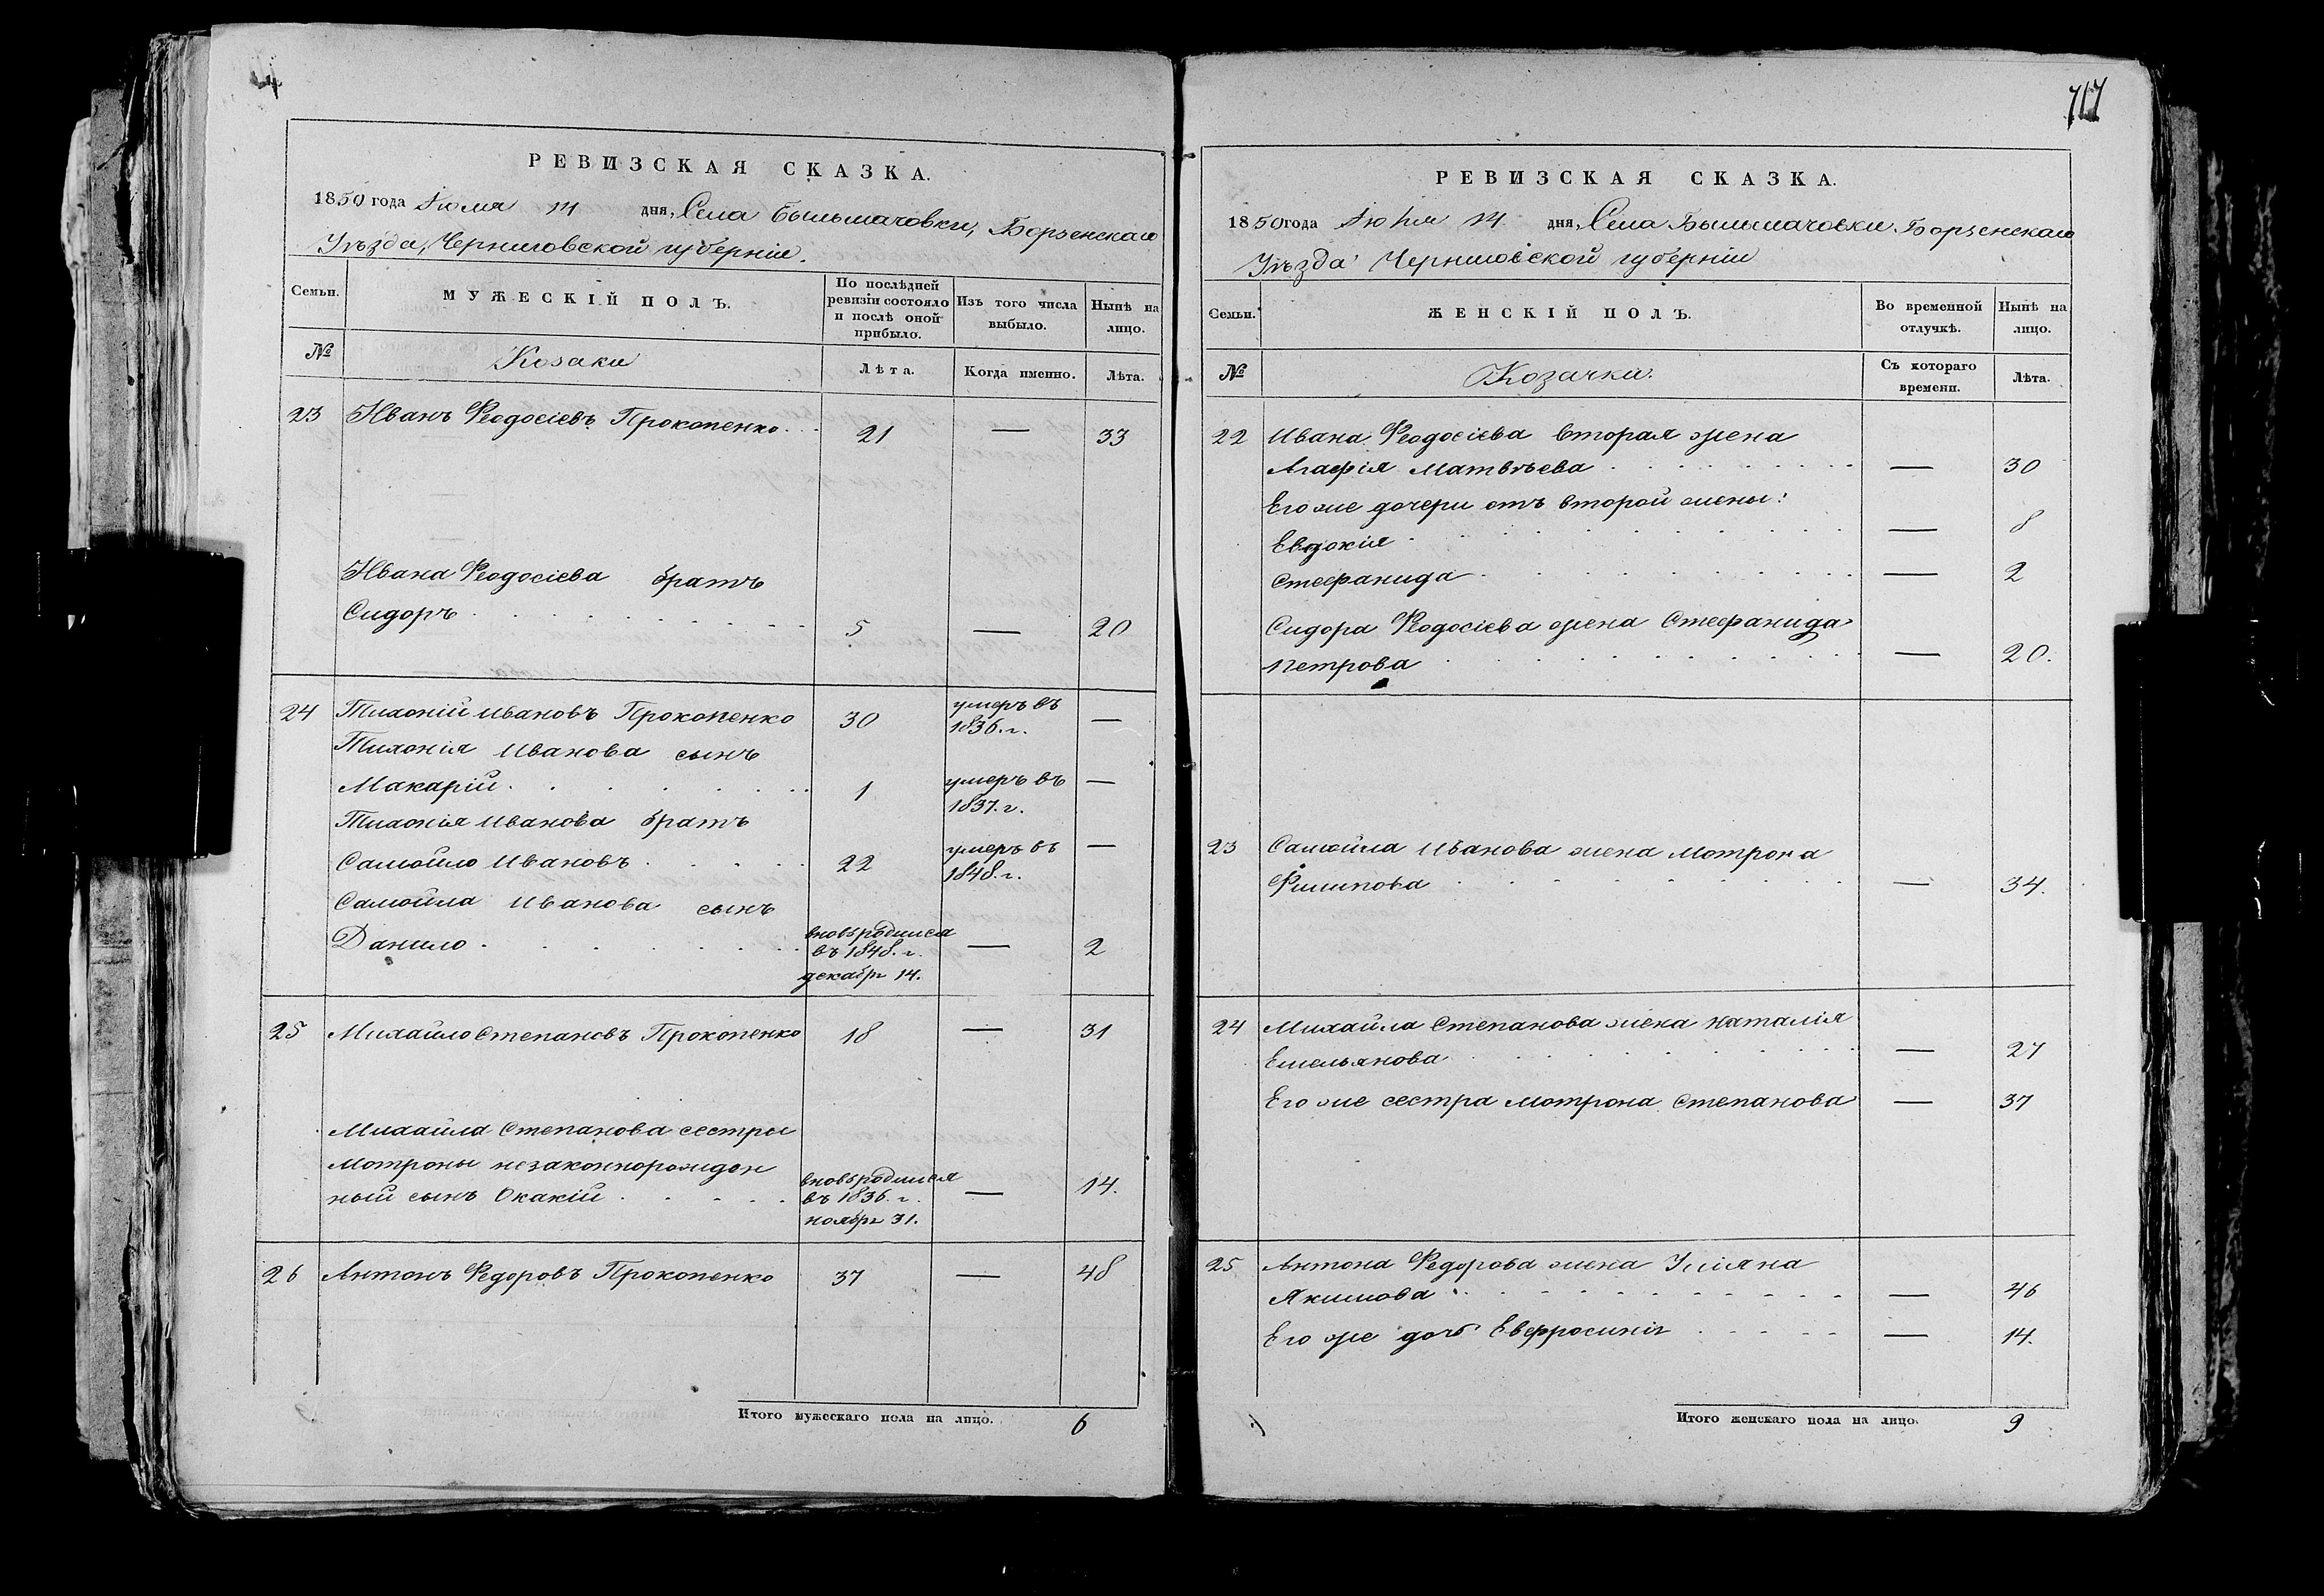 РЕВИЗСКАЯ СКАЗКА.
1850 года Іюля 14 дня, Села Бильмачовки, Борзенскаго
Уѣзда, Черниговской губерніи.
Семьи.
МУЖЕСКІЙ ПОЛЪ.
По послѣдней ревизіи состояло и послѣ оной прибыло.
Изъ того числа выбыло.
Нынѣ на лицо.
№
Козаки
Лѣта.
Когда именно.
Лѣта.
23 Иванъ Ѳеодосіевъ Прокопенко 21 — 33
Ивана Ѳеодосіева братъ
Сидоръ 5 — 20
24 Тихоній Ивановъ Прокопенко 30 умеръ въ 1836. г. —
Тихонія Иванова сынъ
Макарій 1 умеръ въ 1837. г. —
Тихонія Иванова братъ
Самойло Ивановъ 22 умеръ въ 1848. г. —
Самойла Иванова сынъ
Данило вновьродился въ 1848. г. декабря 14. — 2
25 Михайло Степановъ Прокопенко 18 — 31
Михайла Степанова сестры
Мотроны незаконнорожден
ный сынъ Окакій вновьродился въ 1836. г. ноября 31. — 14.
26 Антонъ Ѳедоровъ Прокопенко 37 — 48
Итого мужескаго пола на лицо. 6
717
РЕВИЗСКАЯ СКАЗКА.
1850 года Іюля 14 дня, Села Бильмачовки Борзенскаго
Уѣзда Черниговской губерніи
Семьи.
ЖЕНСКІЙ ПОЛЪ.
Во временной отлучкѣ.
Нынѣ на лицо.
№
Козачки.
Съ котораго времени.
Лѣта.
22 Ивана Ѳеодосіева вторая жена
Агафія Матвѣева — 30
Его же дочери отъ второй жены:
Евдокія — 8
Стефанида — 2
Сидора Ѳеодосіева жена Стефанида
Петрова — 20.
23 Самойла Иванова жена Мотрона
Филипова — 34.
24 Михайла Степанова жена Наталія
Емельянова — 27
Его же сестра Мотрона Степанова — 37
25 Антона Ѳедорова жена Уліяна
Якимова — 46
Его же дочь Евфросинія — 14.
Итого женскаго пола на лицо. 9